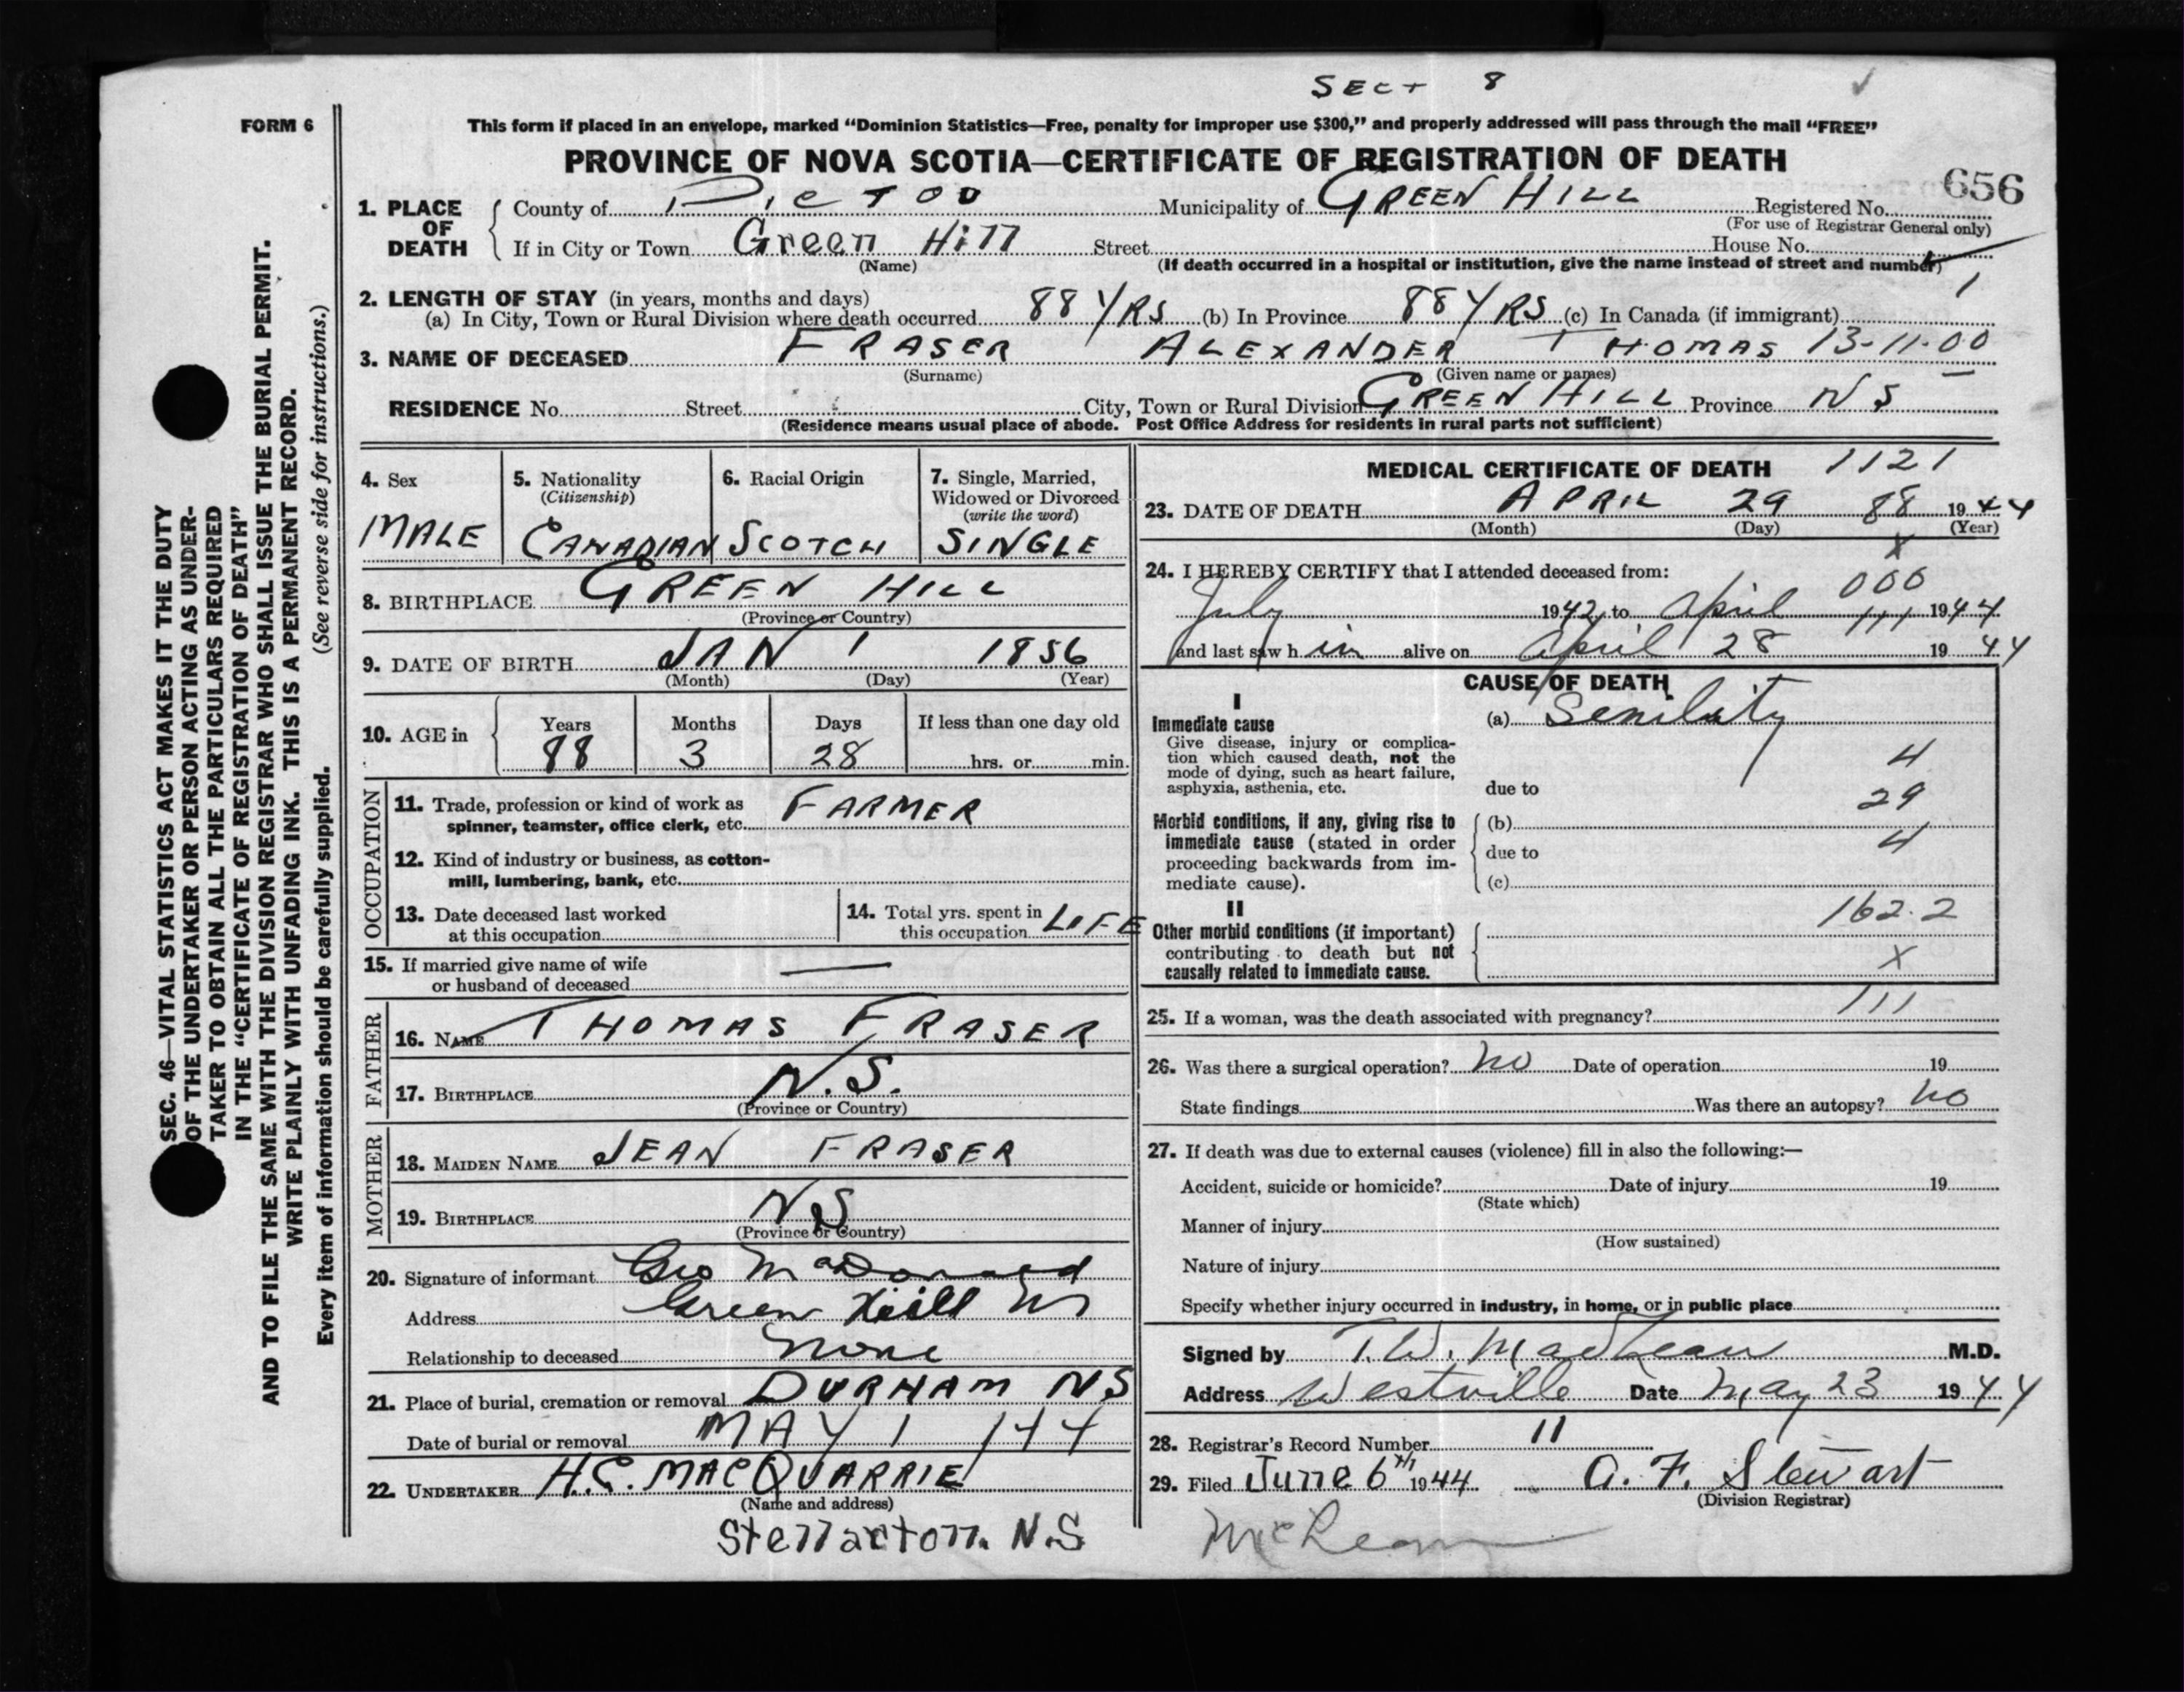 SECT 8
FORM 6
This form if placed in an envelope, marked "Dominion Statistics—Free, penalty for improper use $300," and properly addressed will pass through the mail "FREE"
PROVINCE OF NOVA SCOTIA—CERTIFICATE OF REGISTRATION OF DEATH
656
1. PLACE OF DEATH
County of PICTOU Municipality of GREEN HILL Registered No.
(For use of Registrar General only)
If in City or Town Green Hill Street House No.
(Name) (If death occurred in a hospital or institution, give the name instead of street and number)
2. LENGTH OF STAY (in years, months and days) 1
(a) In City, Town or Rural Division where death occurred 88 YRS (b) In Province 88 YRS (c) In Canada (if immigrant)
3. NAME OF DECEASED FRASER ALEXANDER THOMAS 13-11-00
(Surname) (Given name or names)
RESIDENCE No. Street City, Town or Rural Division GREEN HILL Province N S
(Residence means usual place of abode. Post Office Address for residents in rural parts not sufficient)
4. Sex
MALE
5. Nationality
(Citizenship)
CANADIAN
6. Racial Origin
SCOTCH
7. Single, Married,
Widowed or Divorced
(write the word)
SINGLE
8. BIRTHPLACE GREEN HILL
(Province or Country)
9. DATE OF BIRTH JAN 1 1856
(Month) (Day) (Year)
10. AGE in
Years Months Days If less than one day old
88 3 28 hrs. or min.
OCCUPATION
11. Trade, profession or kind of work as
spinner, teamster, office clerk, etc. FARMER
12. Kind of industry or business, as cotton-
mill, lumbering, bank, etc.
13. Date deceased last worked
at this occupation
14. Total yrs. spent in
this occupation LIFE
15. If married give name of wife
or husband of deceased —
FATHER
16. NAME THOMAS FRASER
17. BIRTHPLACE N.S.
(Province or Country)
MOTHER
18. MAIDEN NAME JEAN FRASER
19. BIRTHPLACE NS
(Province or Country)
20. Signature of informant Geo McDonald
Address Green Hill NS
Relationship to deceased none
21. Place of burial, cremation or removal DURHAM NS
Date of burial or removal MAY 1 /44
22. UNDERTAKER H.C. MACQUARRIE
(Name and address)
Stellarton. N.S
MEDICAL CERTIFICATE OF DEATH 1121
23. DATE OF DEATH APRIL 29 88 1944
(Month) (Day) (Year)
X
24. I HEREBY CERTIFY that I attended deceased from:
000
July 1942, to April 111 1944
and last saw h im alive on April 28 19 44
CAUSE OF DEATH
I
Immediate cause
Give disease, injury or complica-
tion which caused death, not the
mode of dying, such as heart failure,
asphyxia, asthenia, etc.
(a) Senility
4
due to
29
Morbid conditions, if any, giving rise to
immediate cause (stated in order
proceeding backwards from im-
mediate cause).
(b)
due to 4
(c)
II
162.2
Other morbid conditions (if important)
contributing to death but not
causally related to immediate cause.
X
25. If a woman, was the death associated with pregnancy? 111
26. Was there a surgical operation? no Date of operation 19
State findings Was there an autopsy? no
27. If death was due to external causes (violence) fill in also the following:—
Accident, suicide or homicide? Date of injury 19
(State which)
Manner of injury
(How sustained)
Nature of injury
Specify whether injury occurred in industry, in home, or in public place
Signed by T.W. MacLean M.D.
Address Westville Date May 23 1944
28. Registrar's Record Number 11
29. Filed June 6th 1944 A. F. Stewart
(Division Registrar)
McLean
SEC. 46—VITAL STATISTICS ACT MAKES IT THE DUTY
OF THE UNDERTAKER OR PERSON ACTING AS UNDER-
TAKER TO OBTAIN ALL THE PARTICULARS REQUIRED
IN THE "CERTIFICATE OF REGISTRATION OF DEATH"
AND TO FILE THE SAME WITH THE DIVISION REGISTRAR WHO SHALL ISSUE THE BURIAL PERMIT.
WRITE PLAINLY WITH UNFADING INK. THIS IS A PERMANENT RECORD.
Every item of information should be carefully supplied. (See reverse side for instructions.)